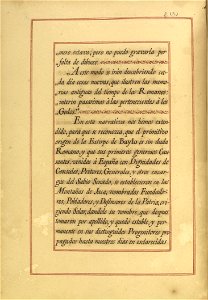 mero octavo; pero no puedo gravarla por
falta de dibuxo.
A este modo se irán descubriendo ca-
da dia cosas nuevas, que ilustren las memo-
rias antiguas del tiempo de los Romanos:
interin pasarémos á las pertenecientes á los
Godos.
En esta narrativa me hé esten-
dido, para que se reconozca, que el primitivo
origen de la Estirpe de es sin duda
Romano, y que sus primeros gerarcas Cau-
santes, venidos á España con Dignidades de
Consules, Pretores, Generales, y otros encar-
gos del Sabio Senado, se establecieron en las
Montañas de nombrados Fundado-
res, Pobladores, y Defensores de la Patria, eri-
giendo Solar, dandole su nombre, que despues
tomaron por apellido, y quedó estable, y per-
manente en sus distinguidos Progenitores pro-
pagados hasta nuestros dias en esclarecidas